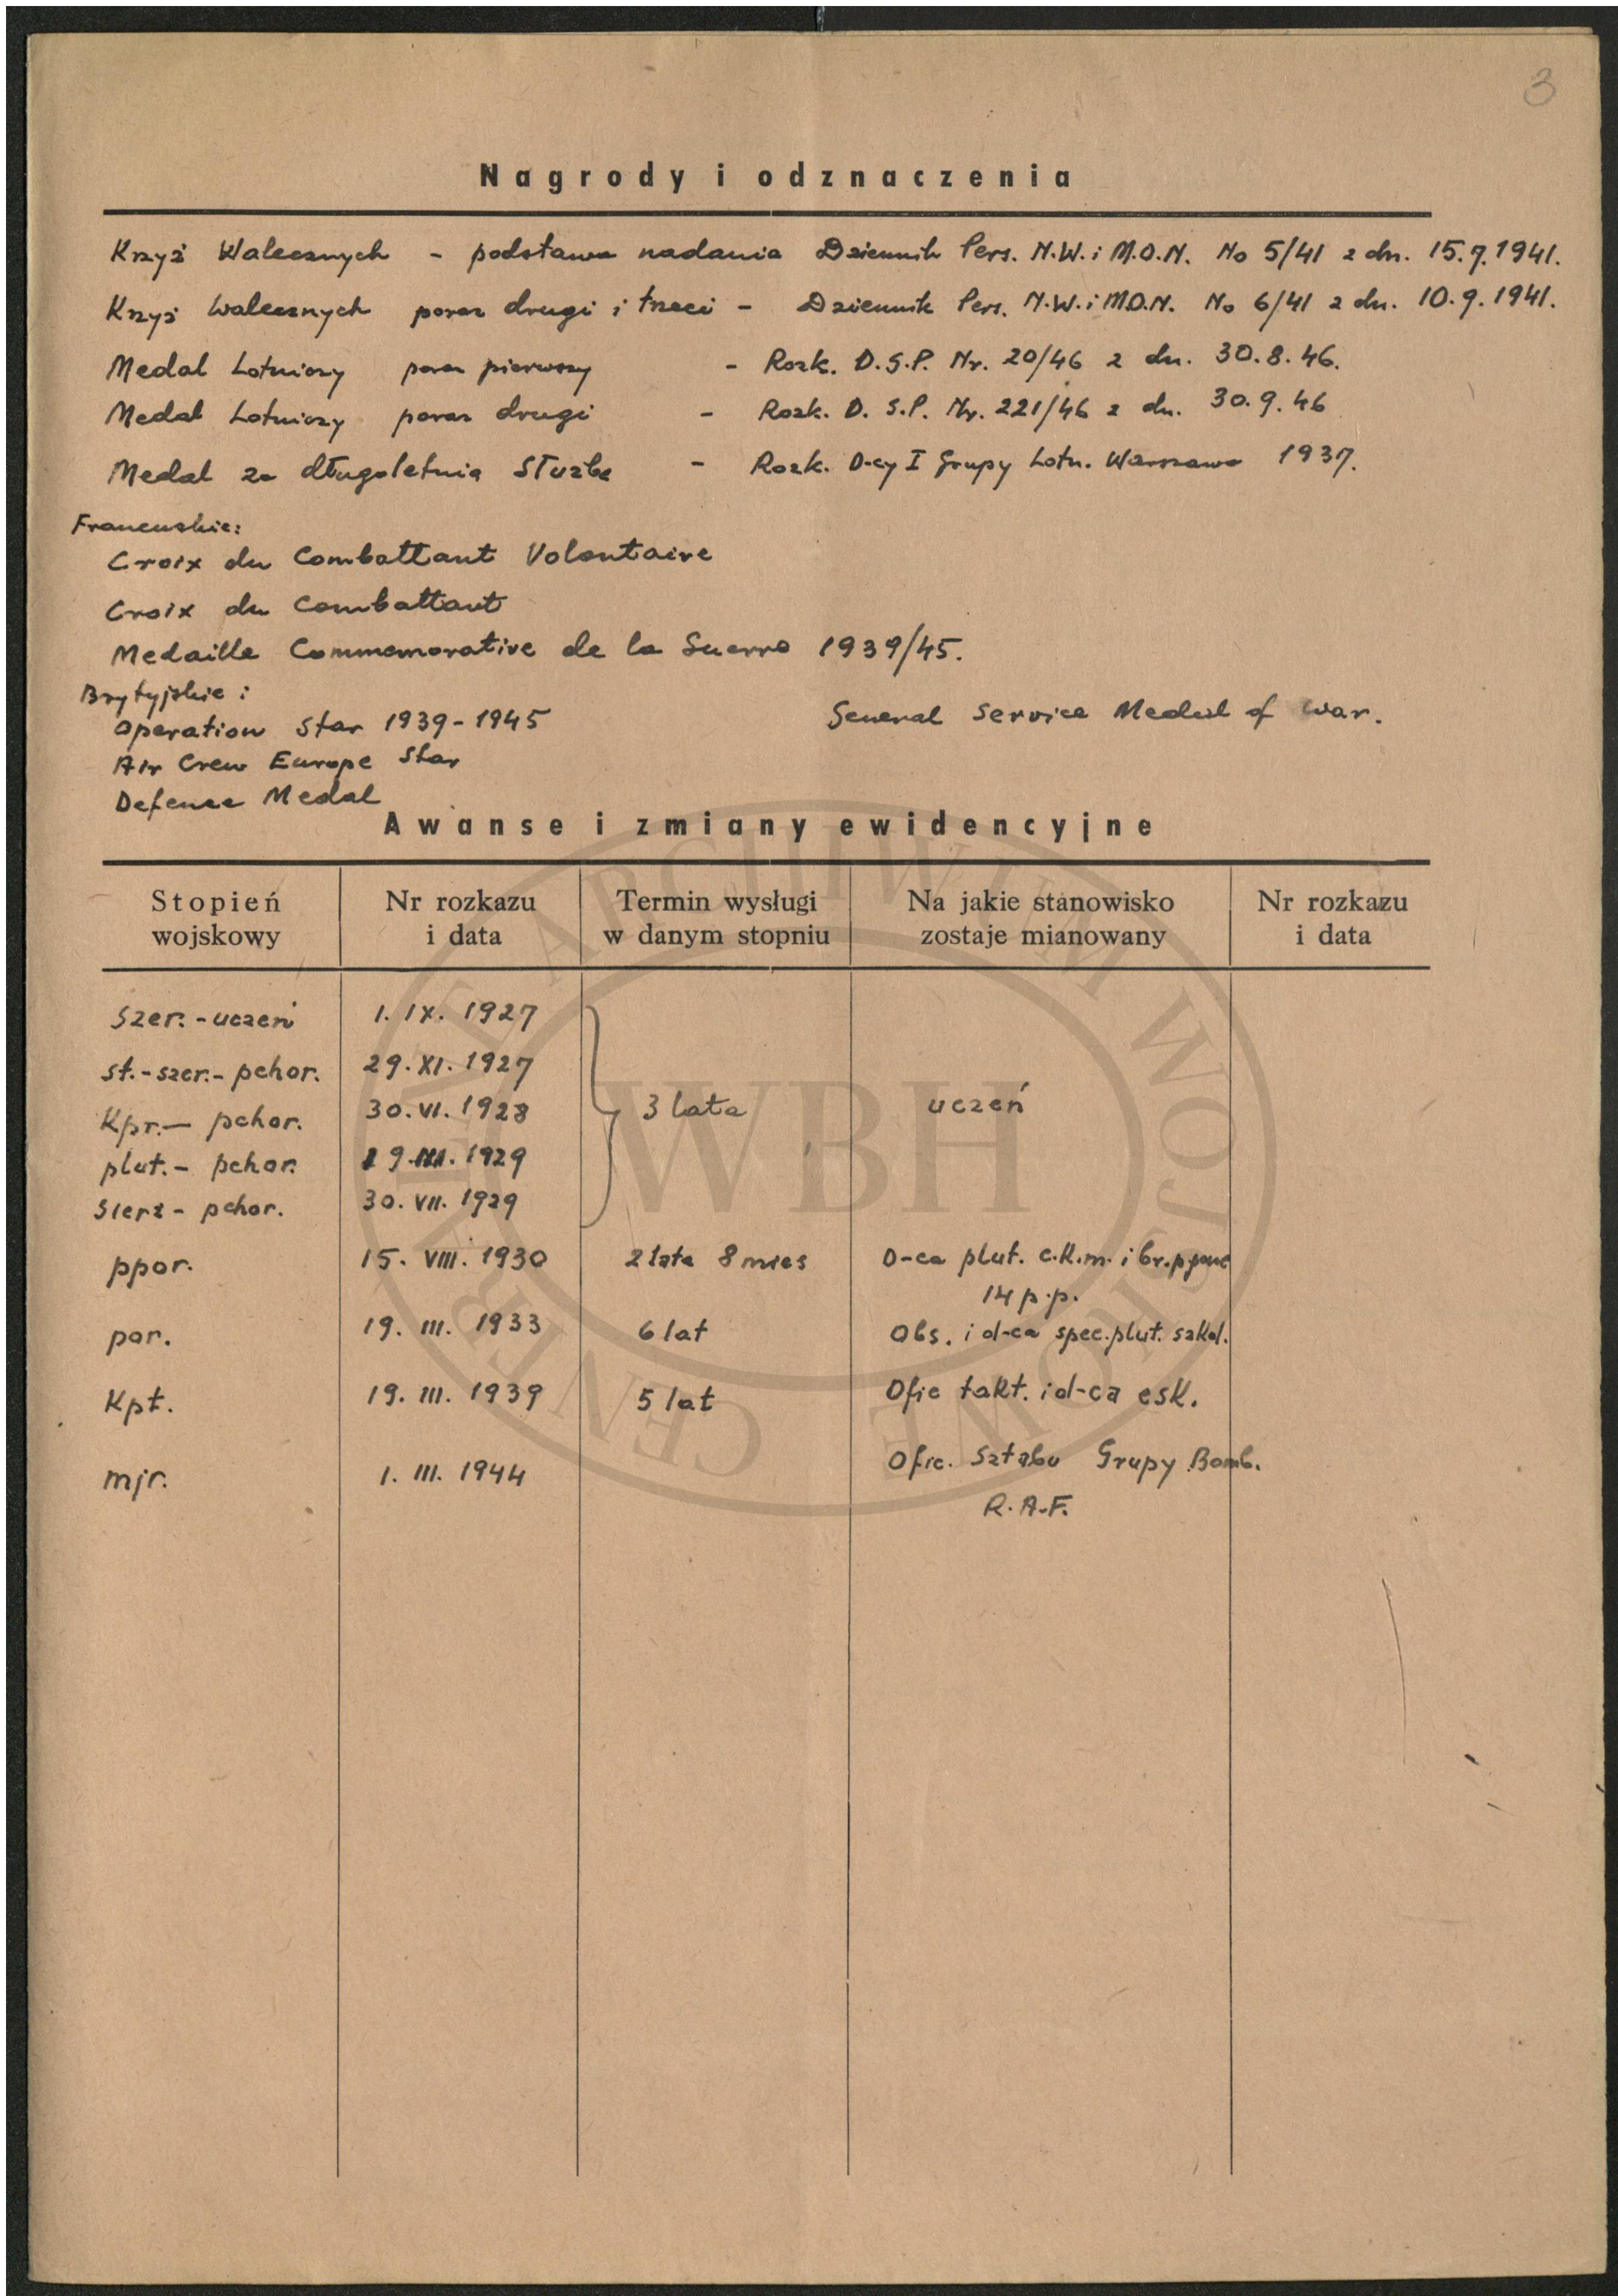 3
Nagrody i odznaczenia
Krzyż Walecznych - podstawa nadania Dziennik Pers. N.W. i M.O.N. No 5/41 z dn. 15.7.1941.
Krzyż Walecznych poraz drugi i trzeci - Dziennik Pers. N.W. i M.O.N. No 6/41 z dn. 10.9.1941.
Medal Lotniczy poraz pierwszy - Rozk. D.S.P. Nr. 20/46 z dn. 30.8.46.
Medal Lotniczy poraz drugi - Rozk. D.S.P. Nr. 221/46 z dn. 30.9.46
Medal za długoletnią Służbę - Rozk. D-cy I Grupy Lotn. Warszawa 1937.
Francuskie:
Croix du Combattant Volontaire
Croix du Combattant
Medaille Commemorative de la Guerre 1939/45.
Brytyjskie:
Operation Star 1939-1945 General Service Medal of War.
Air Crew Europe Star
Defence Medal
Awanse i zmiany ewidencyjne
Stopień wojskowy Nr rozkazu i data Termin wysługi w danym stopniu Na jakie stanowisko zostaje mianowany Nr rozkazu i data
Szer.-uczeń 1. IX. 1927
st.-szer.-pchor. 29. XI. 1927
Kpr.- pchor. 30. VI. 1928 3 lata uczeń
plut.- pchor. 1929
Sierż - pchor. 30. VII. 1929
ppor. 15. VIII. 1930 2 lata 8 mies D-ca plut. c.k.m. i br.ppanc
14 p.p.
por. 19. III. 1933 6 lat Obs. i d-ca spec.plut. szkol.
Kpt. 19. III. 1939 5 lat Ofic takt. i d-ca esk.
mjr. 1. III. 1944 Ofic. Sztabu Grupy Bomb.
R.A.F.
CENTRALNE ARCHIWUM WOJSKOWE
WBH